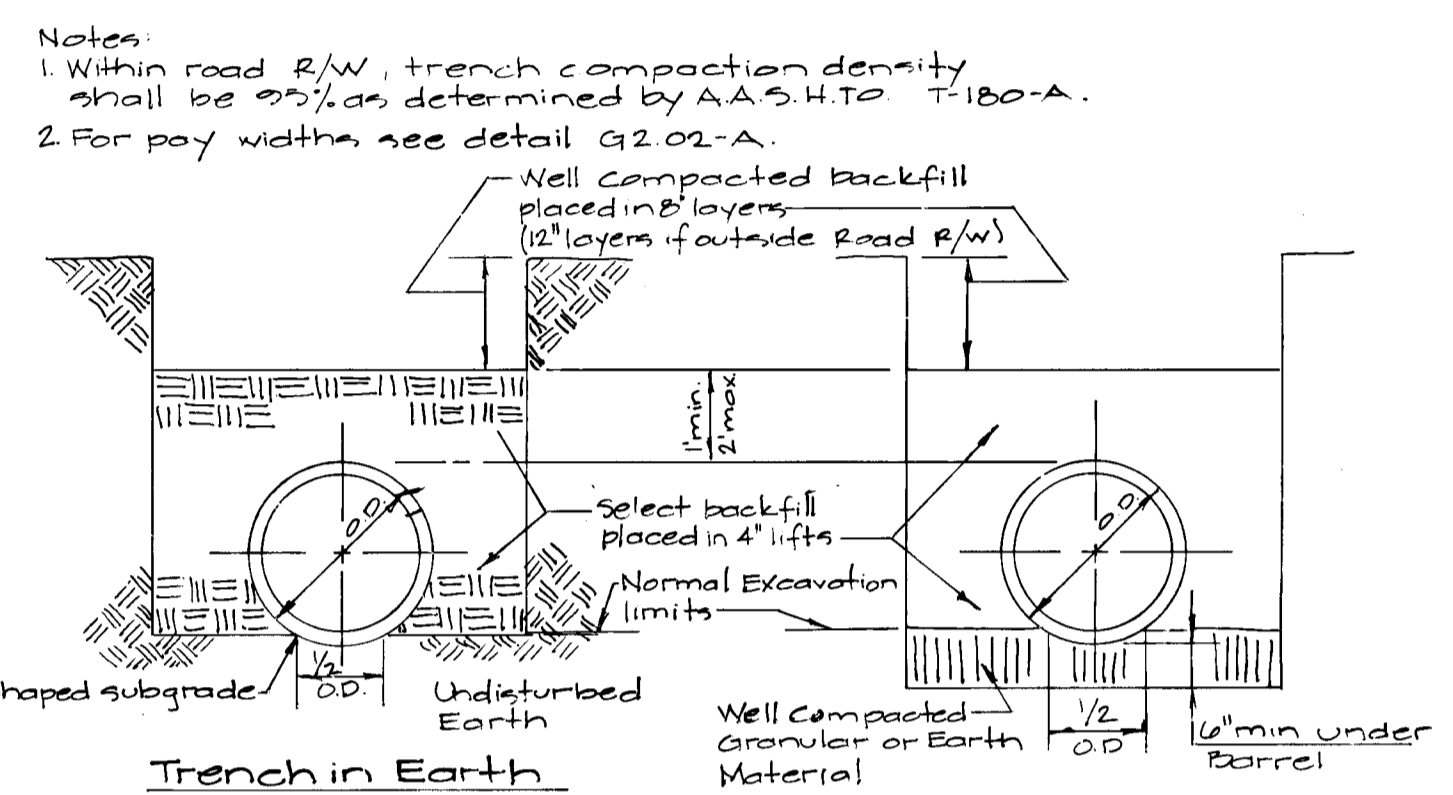 Notes:
1. Within road R/W, trench compaction density
shall be 95% as determined by A.A.S.H.T.O. T-180-A.
2. For pay widths see detail G2.02-A.
Well compacted backfill
placed in 8" layers
(12" layers if outside Road R/W)
1' min.
2' max.
O.D.
O.D.
Select backfill
placed in 4" lifts
Normal Excavation
limits
haped subgrade
1/2
O.D.
Undisturbed
Earth
Well Compacted
Granular or Earth
Material
1/2
O.D
6" min under
Barrel
Trench in Earth